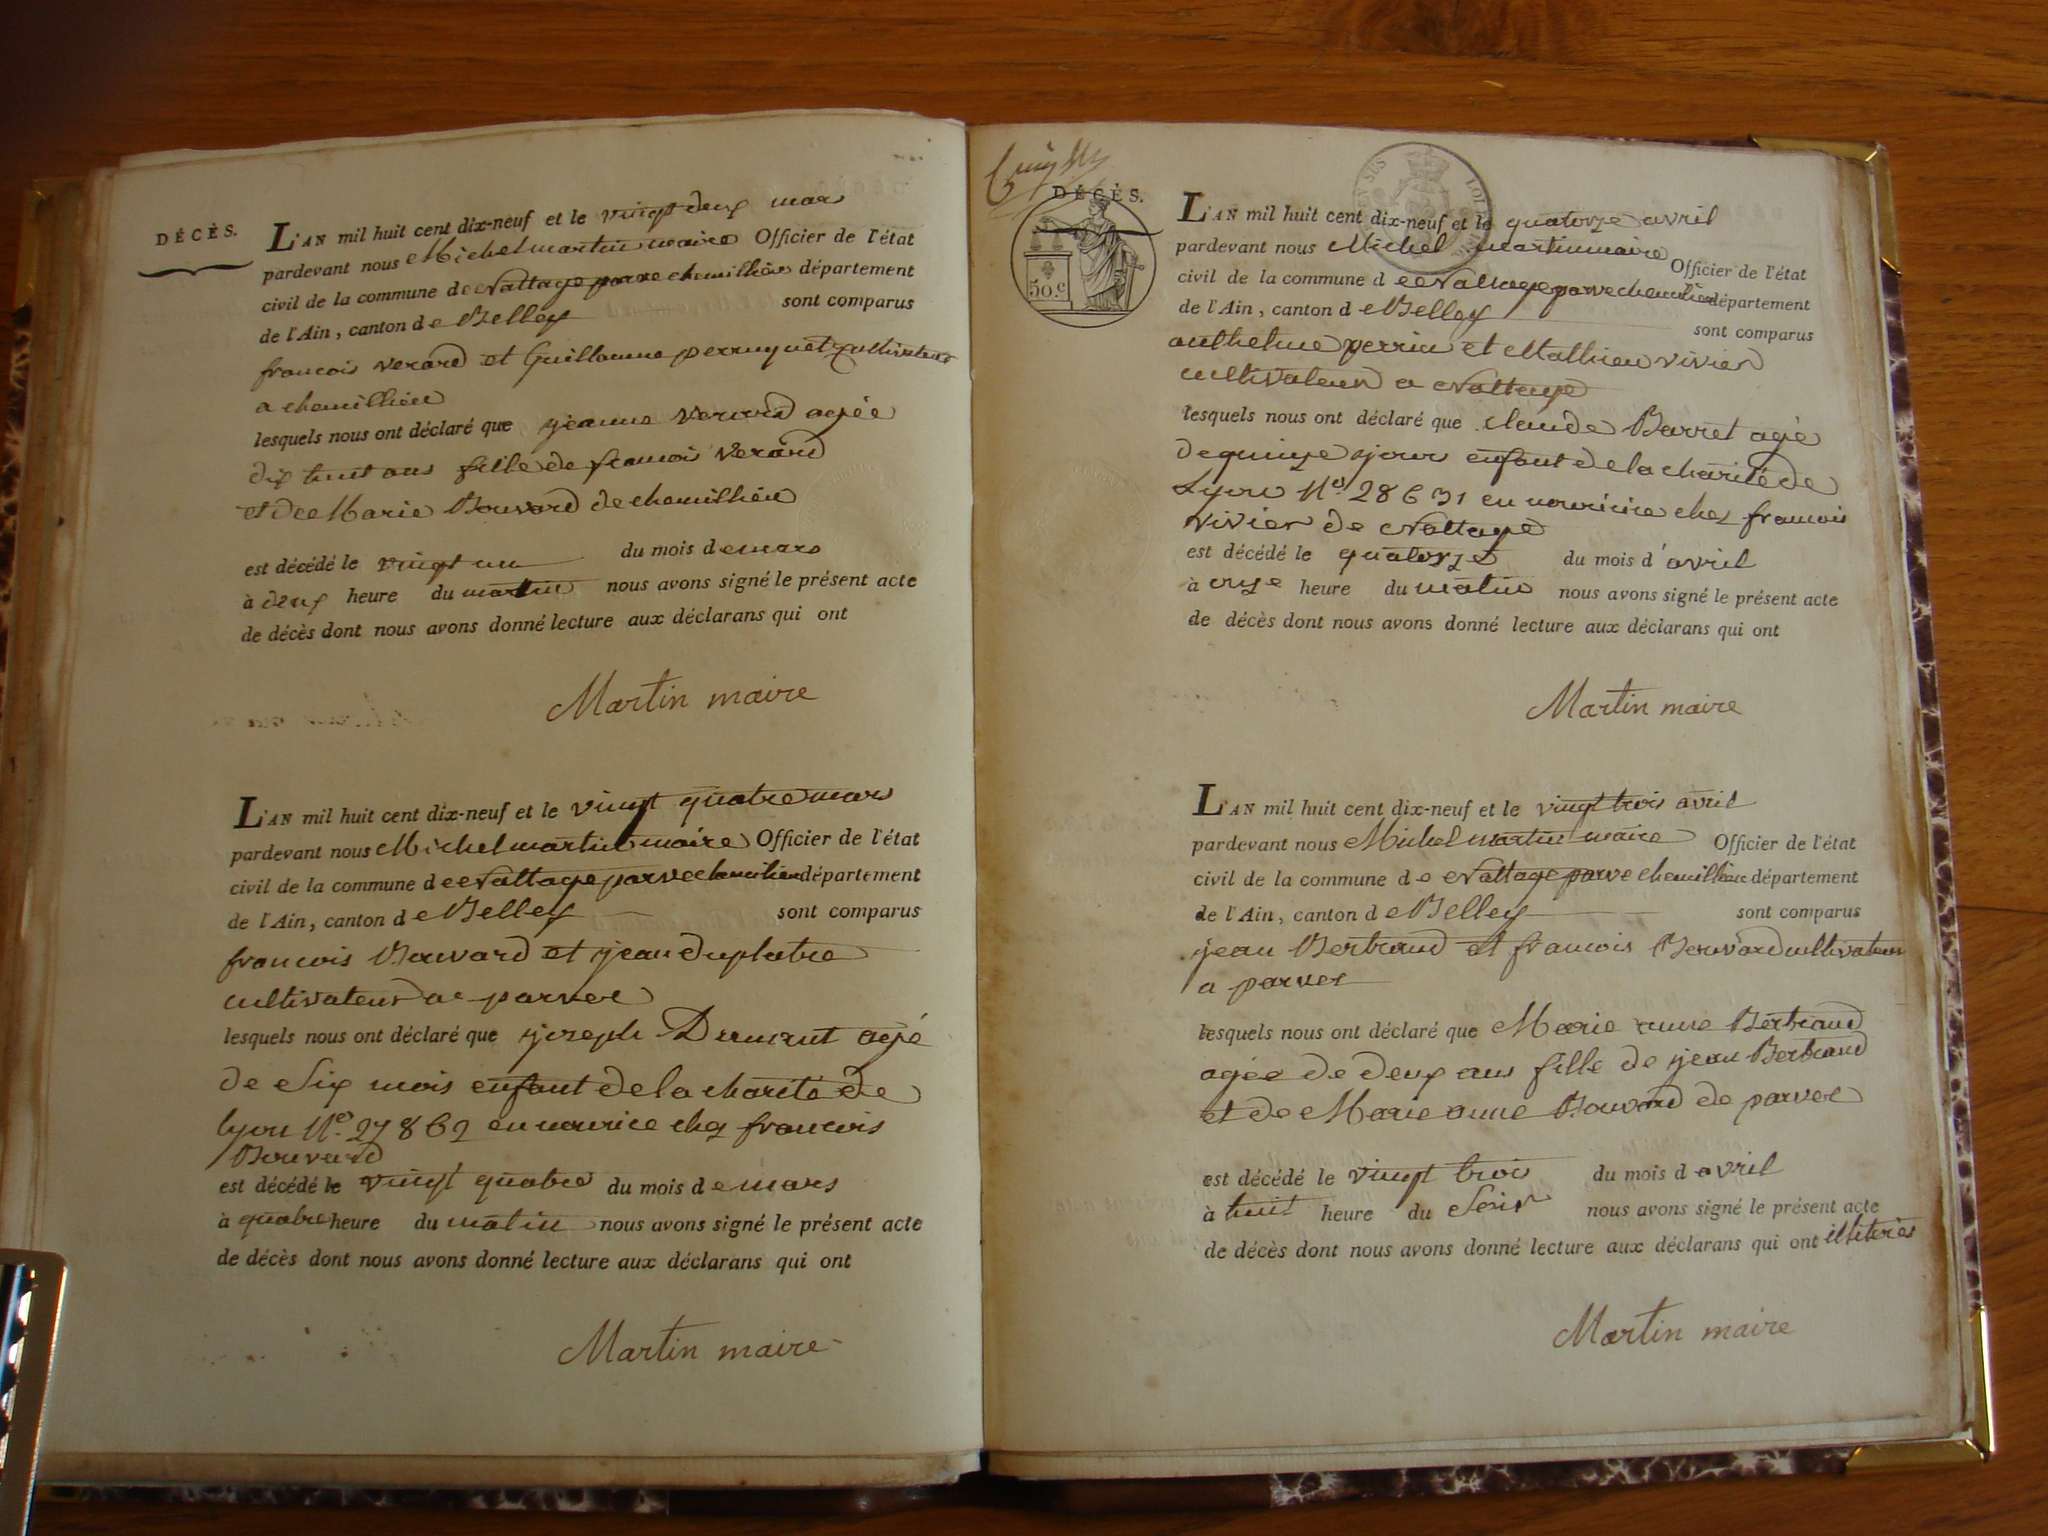 DÉCÈS.
L'AN mil huit cent dix-neuf et le vingt deux mars
pardevant nous Michel martin maire Officier de l'état
civil de la commune de Nattage parve chemillieu département
de l'Ain, canton de Belley sont comparus
francois verard et Guillaume perruquet cultivateurs
a chemillieu
lesquels nous ont déclaré que jeanne verard agée
dix huit ans fille de francois verard
et de Marie Bouvard de chemillieu
est décédé le vingt un du mois de mars
à deux heure du matin nous avons signé le présent acte
de décès dont nous avons donné lecture aux déclarans qui ont
Martin maire
L'AN mil huit cent dix-neuf et le vingt quatre mars
pardevant nous Michel martin maire Officier de l'état
civil de la commune de Nattage parve chemillieu département
de l'Ain, canton de Belley sont comparus
francois Bouvard et jean duplatre
cultivateur a parves
lesquels nous ont déclaré que joseph agé
de Six mois enfant de la charité de
lyon N° 27862 en nourice chez francois
Bouvard
est décédé le vingt quatre du mois de mars
à quatre heure du matin nous avons signé le présent acte
de décès dont nous avons donné lecture aux déclarans qui ont
Martin maire
DÉCÈS.
50.c
L'AN mil huit cent dix-neuf et le quatorze avril
pardevant nous Michel martin maire Officier de l'état
civil de la commune de Nattage parve chemillieu département
de l'Ain, canton de Belley sont comparus
anthelme perrin et Mathieu vivier
cultivateur a Nattage
lesquels nous ont déclaré que claude Barret agé
de quinze jours enfant de la charité de
Lyon N° 28631 en nourice chez francois
vivier de Nattage
est décédé le quatorze du mois d'avril
à onze heure du matin nous avons signé le présent acte
de décès dont nous avons donné lecture aux déclarans qui ont
Martin maire
L'AN mil huit cent dix-neuf et le vingt trois avril
pardevant nous Michel martin maire Officier de l'état
civil de la commune de Nattage parve chemillieu département
de l'Ain, canton de Belley sont comparus
jean Bertrand et francois Bouvard cultivateur
a parves
lesquels nous ont déclaré que Marie anne Bertrand
agée de deux ans fille de jean Bertrand
et de Marie anne Bouvard de parves
est décédé le vingt trois du mois d avril
à huit heure du Soir nous avons signé le présent acte
de décès dont nous avons donné lecture aux déclarans qui ont illiterés
Martin maire